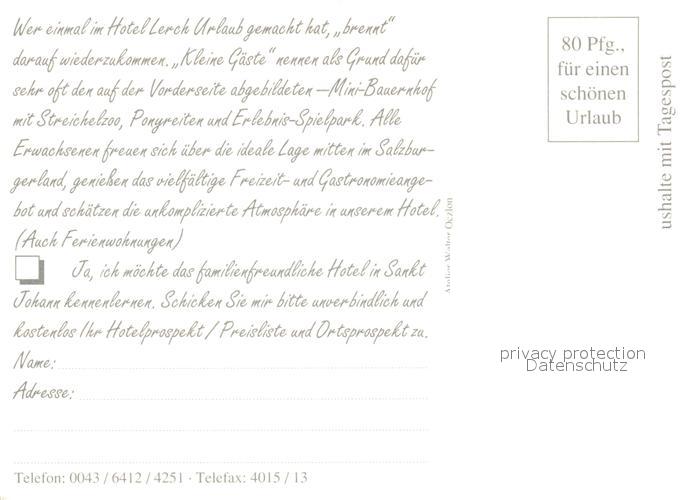 Wer einmal im Hotel Lerch Urlaub gemacht hat, „brennt“
darauf wiederzukommen. „Kleine Gäste“ nennen als Grund dafür
sehr oft den auf der Vorderseite abgebildeten – Mini-Bauernhof
mit Streichelzoo, Ponyreiten und Erlebnis-Spielpark. Alle
Erwachsenen freuen sich über die ideale Lage mitten im Salzbur-
gerland, genießen das vielfältige Freizeit- und Gastronomieange-
bot und schätzen die unkomplizierte Atmosphäre in unserem Hotel.
(Auch Ferienwohnungen)
Ja, ich möchte das familienfreundliche Hotel in Sankt
Johann kennenlernen. Schicken Sie mir bitte unverbindlich und
kostenlos Ihr Hotelprospekt / Preisliste und Ortsprospekt zu.
Name:
Adresse:
Telefon: 0043 / 6412 / 4251 · Telefax: 4015 / 13
Atelier Walter Oczlon
80 Pfg.,
für einen
schönen
Urlaub
ushalte mit Tagespost
privacy protection
Datenschutz